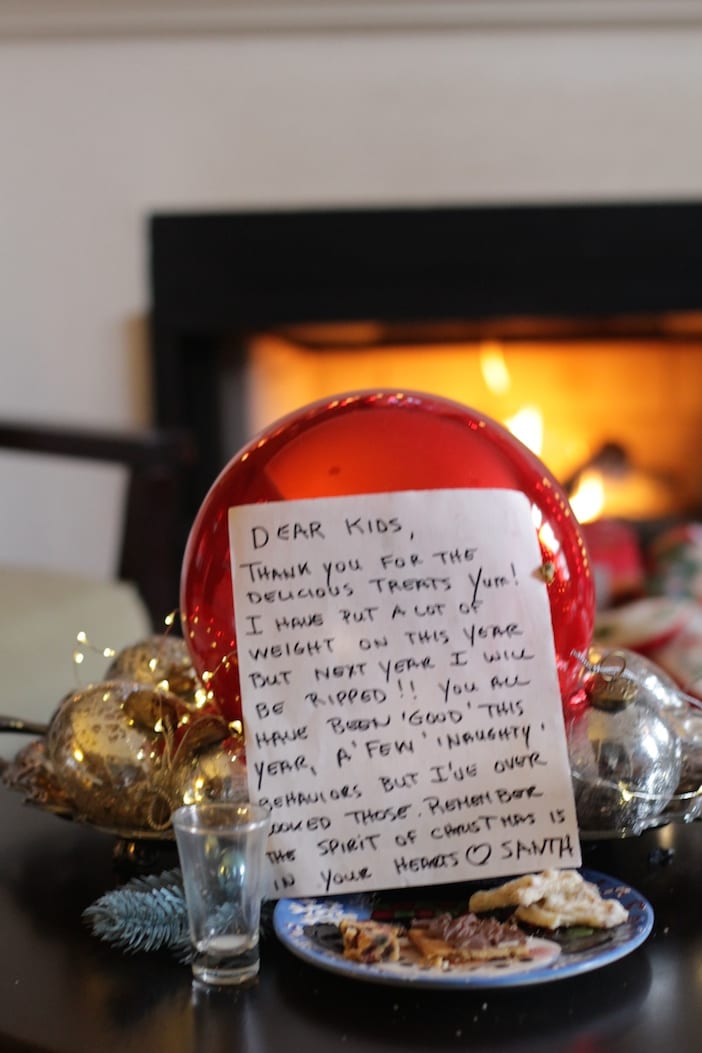 DEAR KIDS,
THANK YOU FOR THE
DELICIOUS TREATS YUM!
I HAVE PUT A LOT OF
WEIGHT ON THIS YEAR
BUT NEXT YEAR I WILL
BE RIPPED!! YOU ALL
HAVE BEEN 'GOOD' THIS
YEAR, A 'FEW 'NAUGHTY'
BEHAVIORS BUT I'VE OVER
LOOKED THOSE. REMEMBER
THE SPIRIT OF CHRISTMAS IS
IN YOUR HEARTS ♡ SANTA